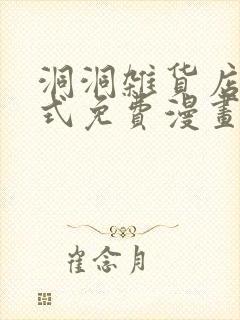 洞洞雑貨店
式免費漫畫
崔念月